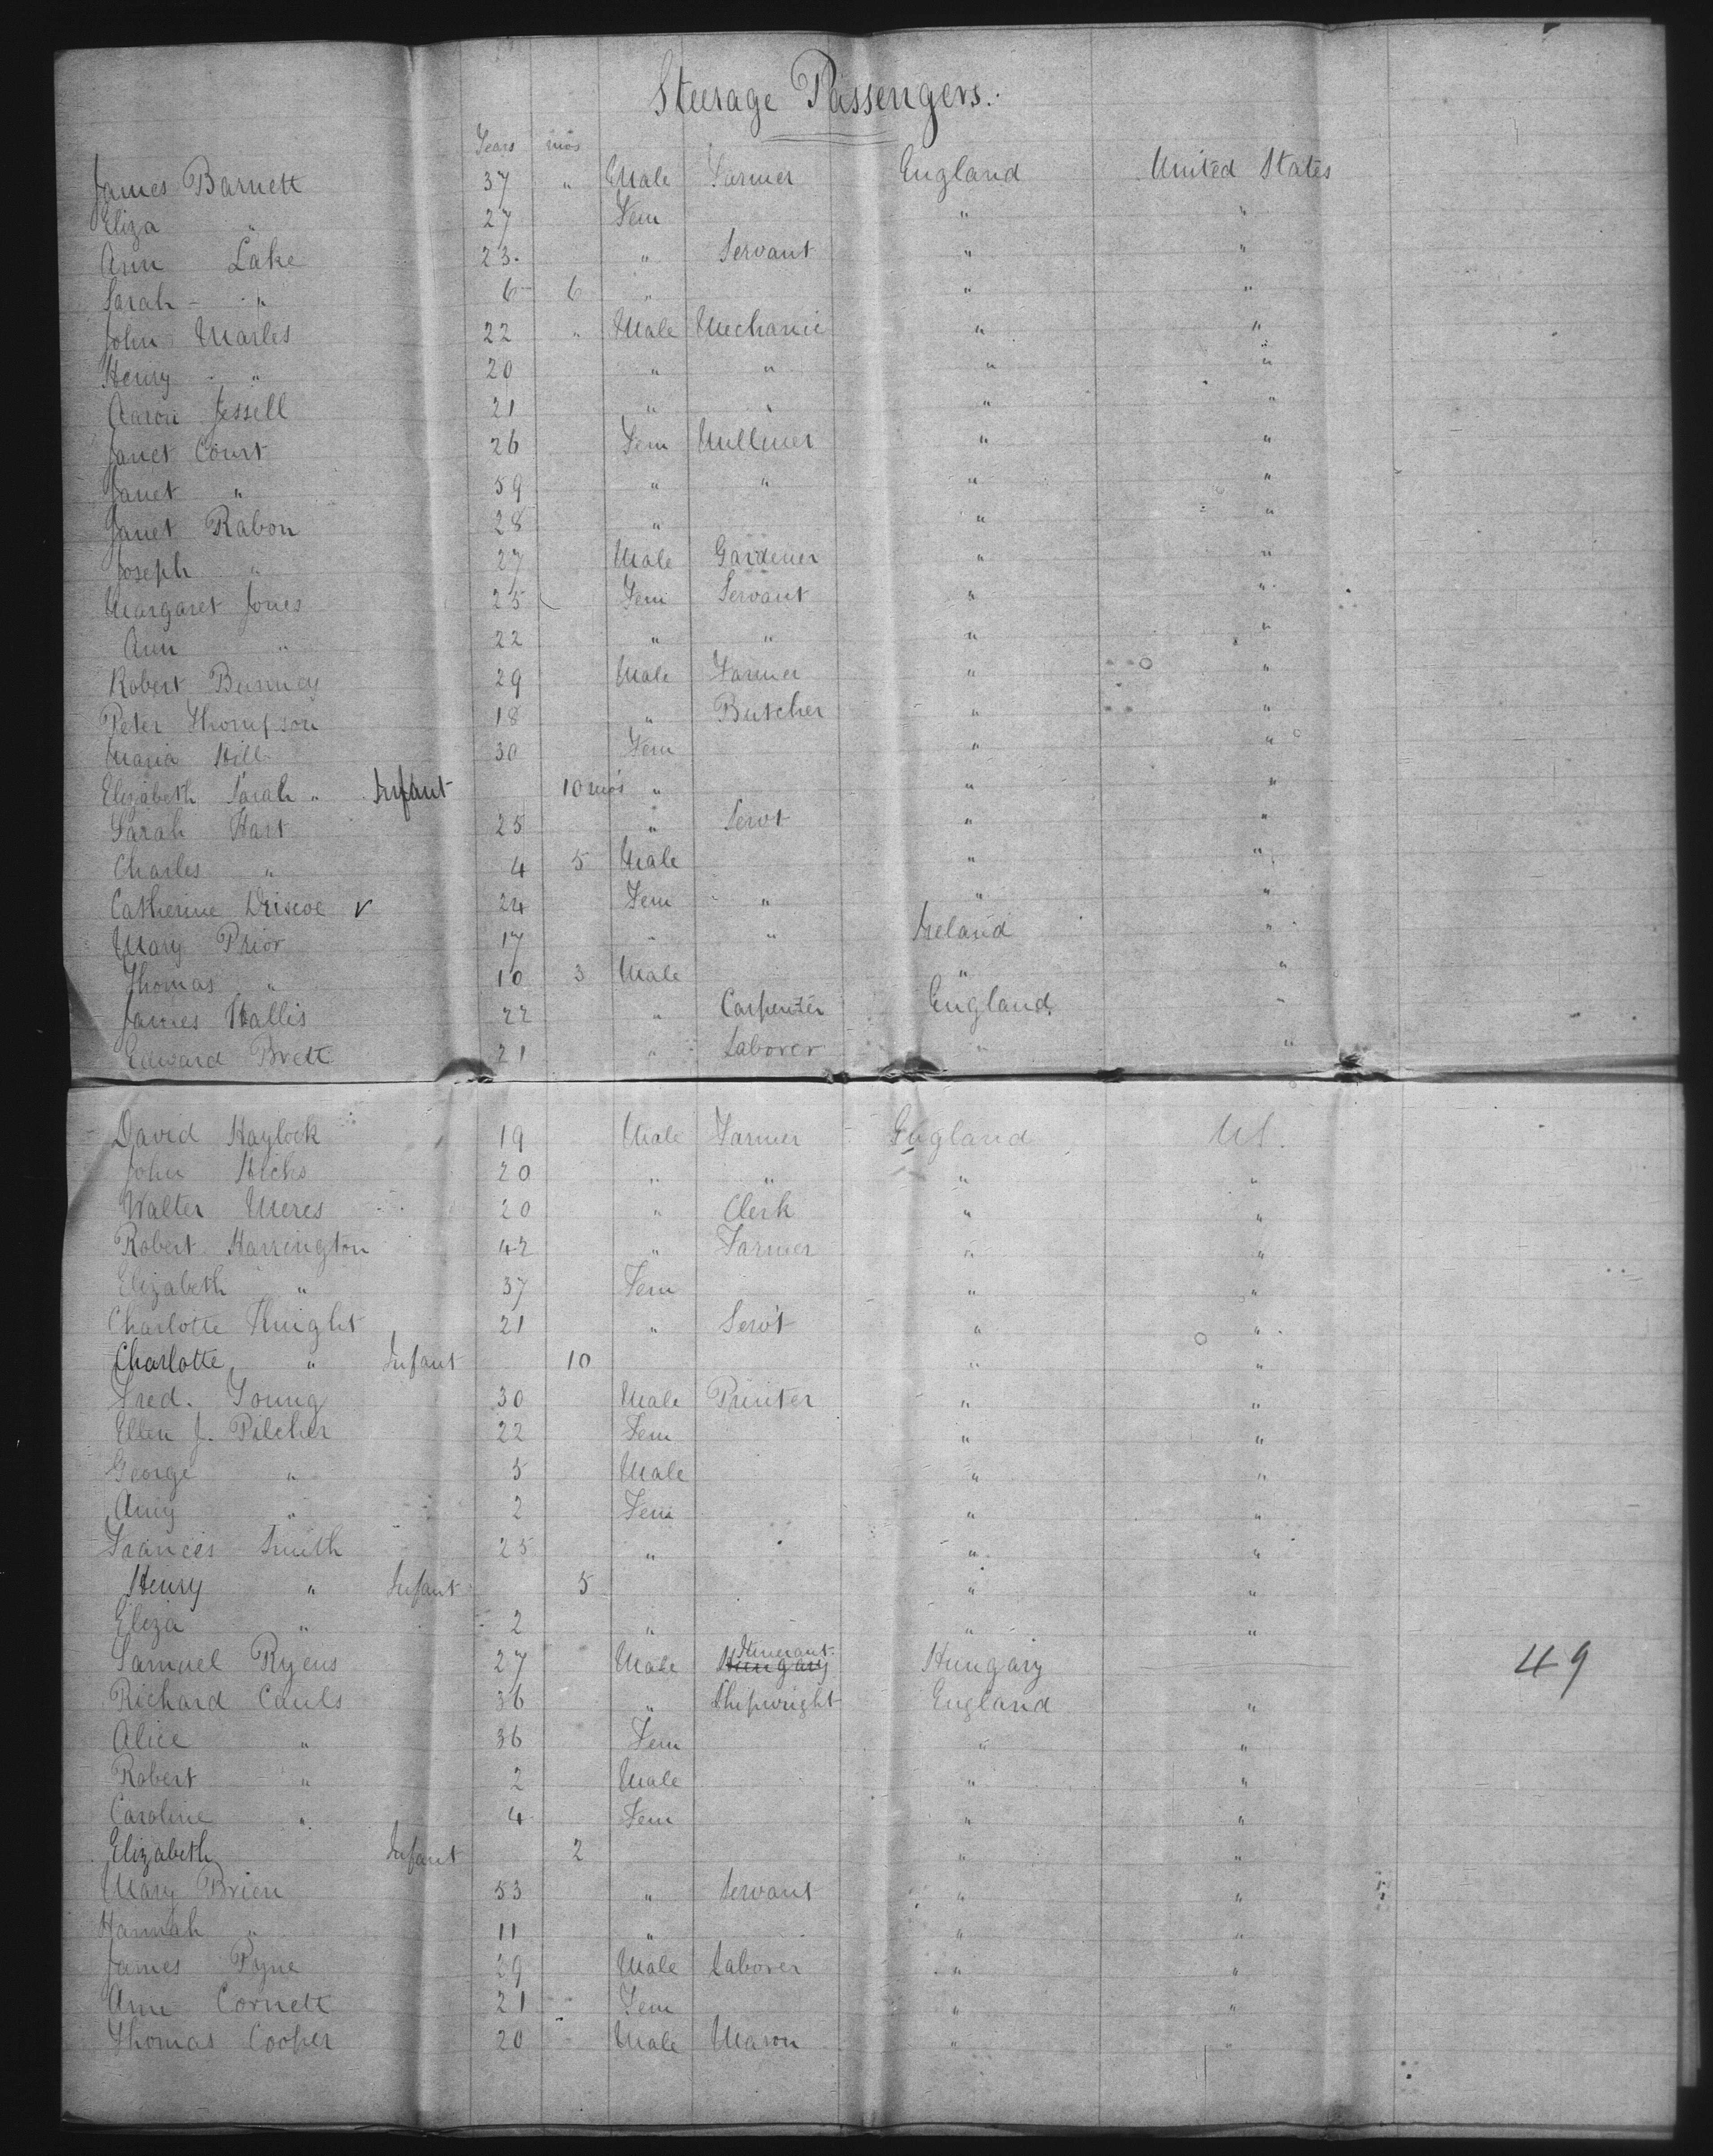 Steerage Passengers.
Years mos
James Barnett 37 " Male Farmer England United States
Eliza " 27 Fem " "
Ann Lake 23. " Servant " "
Sarah - " 6 6 " " "
John Marles 22 " Male Mechanic " "
Henry " 20 " " " "
Aaron Jessell 21 " " " "
Janet Court 26 Fem Milliner " "
Janet " 59 " " " "
Janet Rabon 28 " " "
Joseph " 27 Male Gardener " "
Margaret Jones 25 Fem Servant " "
Ann " 22 " " " "
Robert Bunney 29 Male Farmer " "
Peter Thompson 18 " Butcher " "
Maria Hill 30 Fem " "
Elizabeth Sarah " Infant 10 mos " " "
Sarah Hart 25 " Servt " "
Charles " 4 5 Male " "
Catherine Driscoe v 24 Fem " " "
Mary Prior 17 " " Ireland "
Thomas " 10 3 Male " "
James Hallis 22 " Carpenter England "
Edward Brett 21 " Laborer " "
David Haylock 19 Male Farmer England US.
John Hicks 20 " " " "
Walter Meres 20 " Clerk " "
Robert Harrington 42 " Farmer " "
Elizabeth " 37 Fem " "
Charlotte Knight 21 " Servt " "
Charlotte " Infant 10 " "
Fred. Young 30 Male Printer " "
Ellen J. Pilcher 22 Fem " "
George " 5 Male " "
Amy " 2 Fem " "
Frances Smith 25 " " "
Henry " Infant 5 " "
Eliza " 2 " " "
Samuel Ryens 27 Male Hungary Itinerant Hungary 49
Richard Cauls 36 " Shipwright England "
Alice " 36 Fem " "
Robert " 2 Male " "
Caroline " 4 Fem " "
Elizabeth Infant 2 " "
Mary Brien 53 " Servant " "
Hannah " 11 " " "
James Payne 29 Male Laborer " "
Ann Cornett 21 Fem " "
Thomas Cooper 20 Male Mason " "